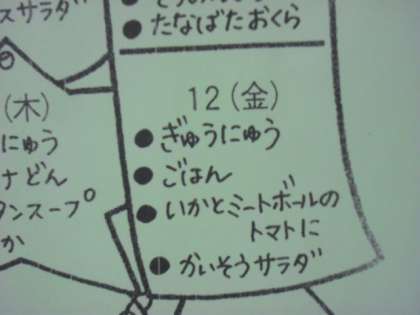 スサラダ
たなばたおくら
(木)
にゅう
ナどん
タンスープ
か
12(金)
ぎゅうにゅう
ごはん
いかとミートボールの
トマトに
かいそうサラダ